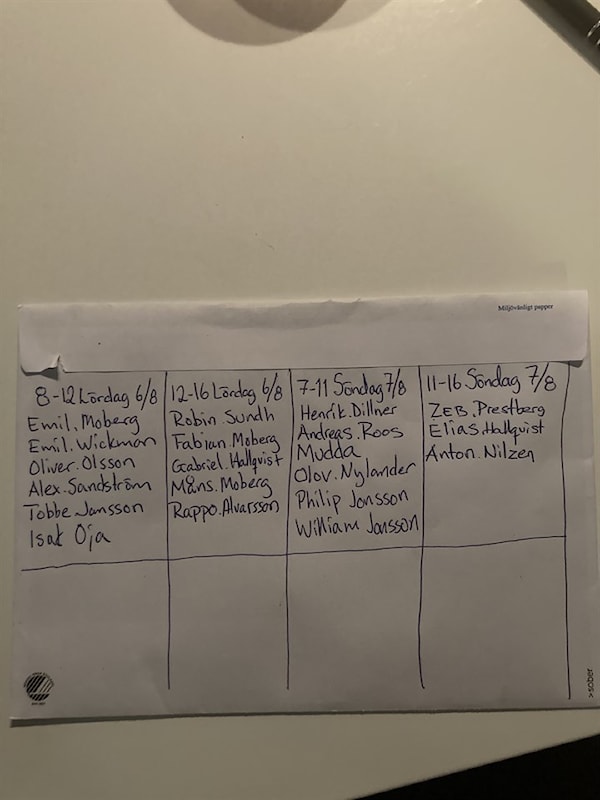 Miljövänligt papper
8-12 Lördag 6/8
Emil. Moberg
Emil. Wickman
Oliver. Olsson
Alex. Sandström
Tobbe Jansson
Isak Oja
12-16 Lördag 6/8
Robin Sundh
Fabian Moberg
Gabriel. Hallqvist
Måns. Moberg
Rappo. Alvarsson
7-11 Söndag 7/8
Henrik. Dillner
Andreas. Roos
Mudda
Olov. Nylander
Philip Jonsson
William Jonsson
11-16 Söndag 7/8
ZEB. Prestberg
Elias. Hallqvist
Anton. Nilzen
>sober